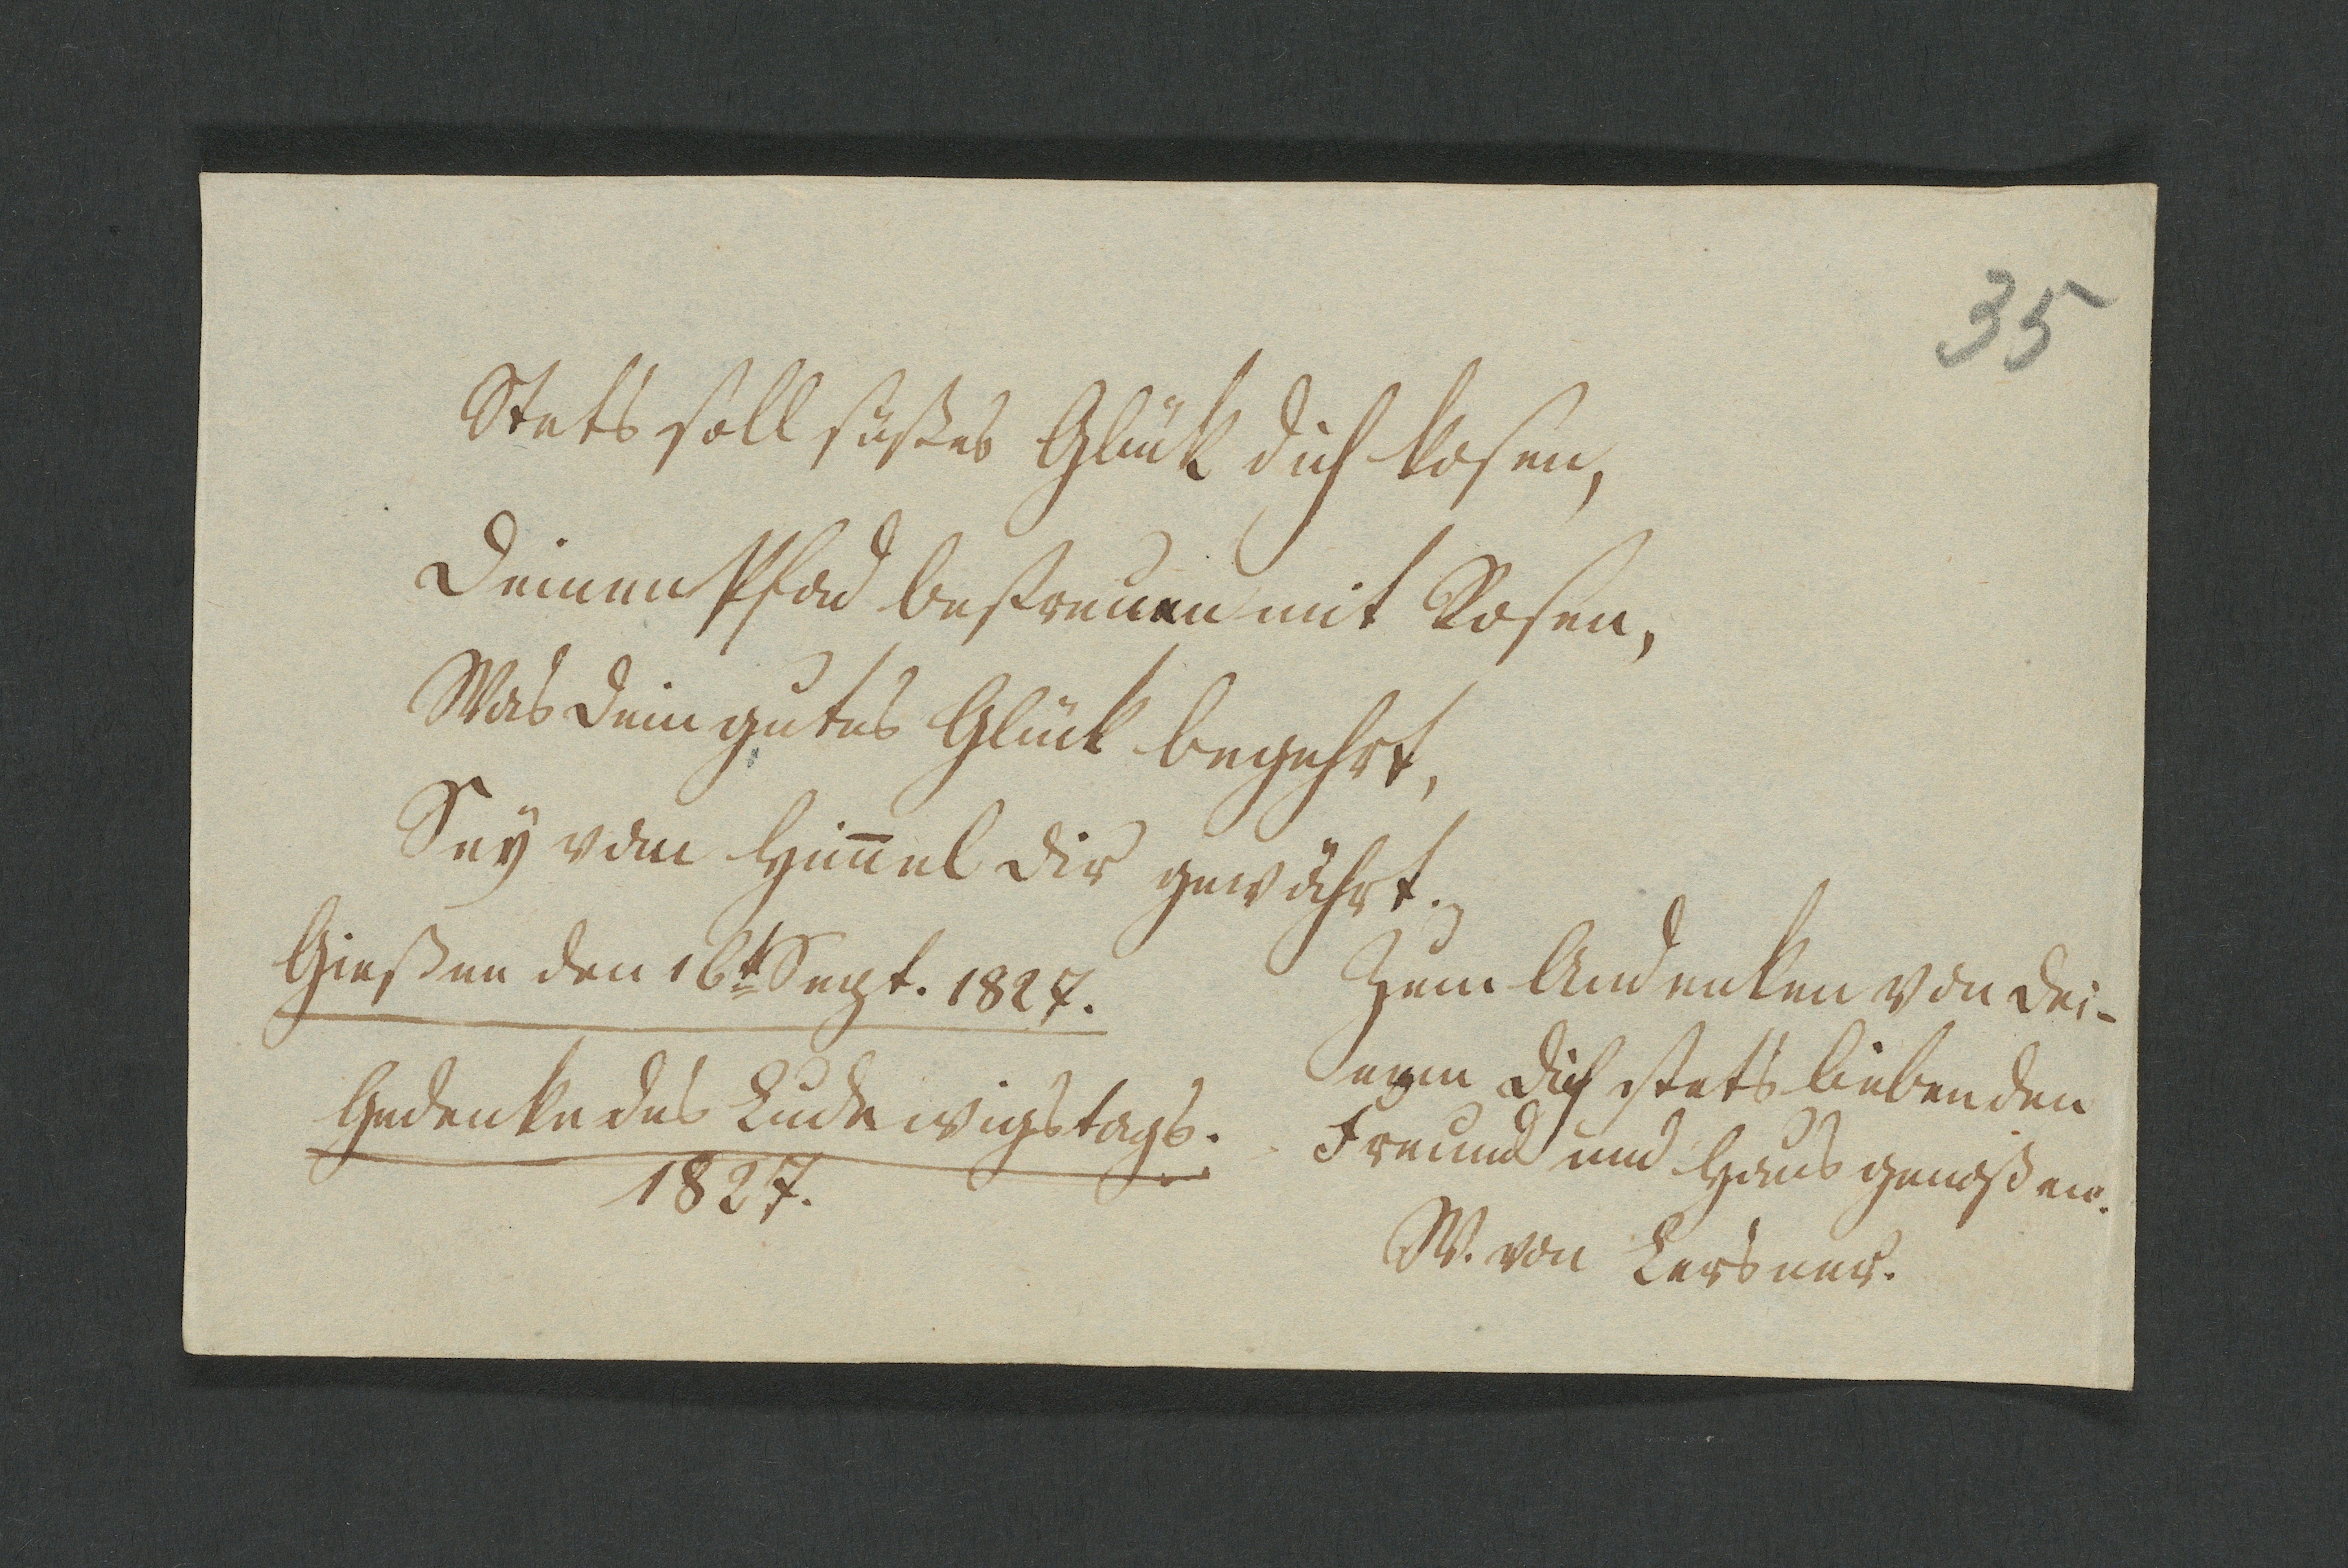 35
Stets soll süßes Glük dich kosen,
Deinen Pfad bestreuen mit Rosen,
Was dein gutes Glück begehrt,
Sey vom Him̅el dir gewährt.
Gießen den 16t Sept. 1827.
Gedenke des Ludewigstags.
1827.
Zum Andenken von dei-
nem dich stets liebenden
Freund und Hausgenoßen.
W. von Lersner.